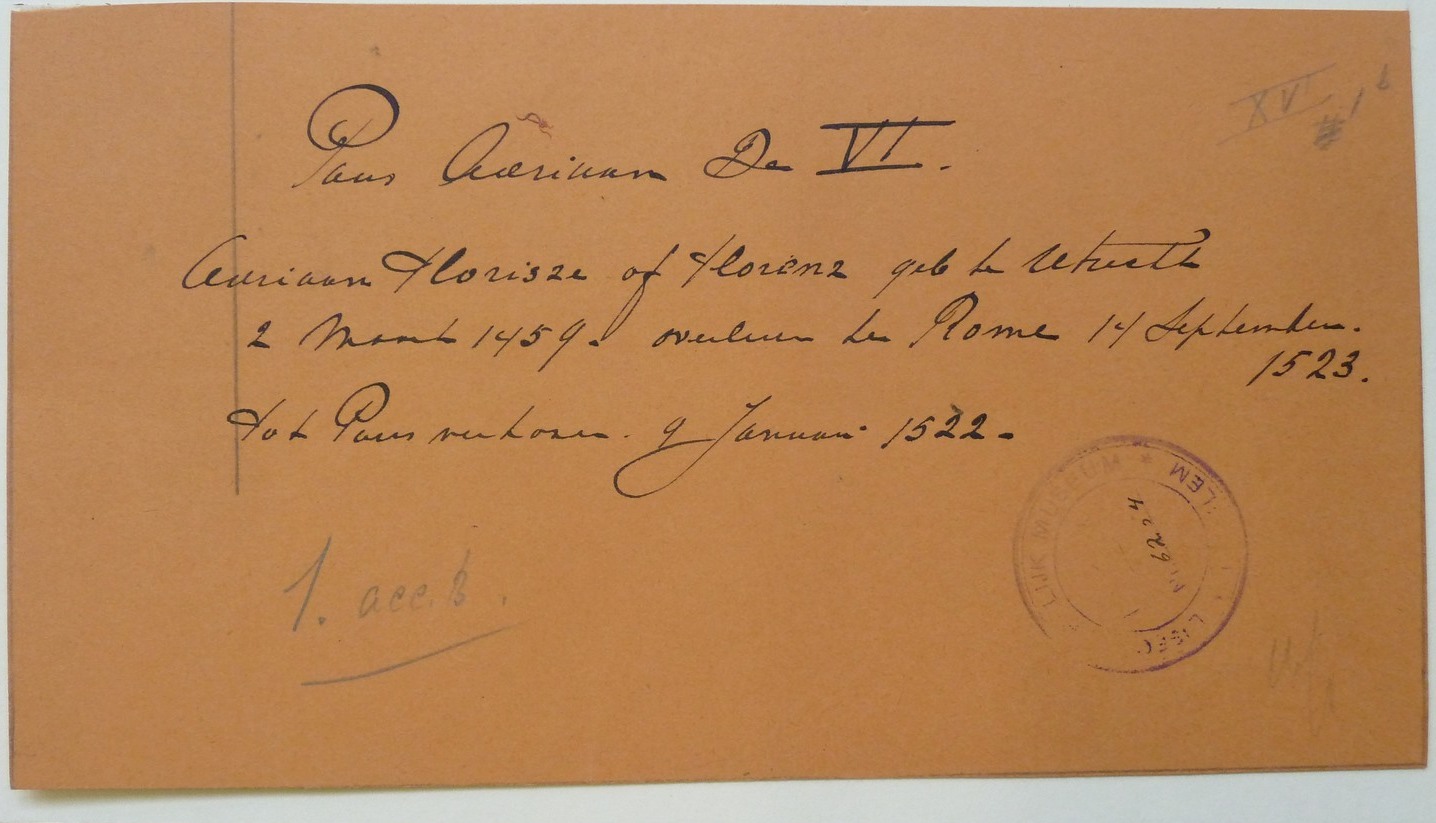 XVI
# 1 b
Paus Adriaan De VI.
Adriaan Florisze of Florenz geb te Utrecht
2 Maart 1459. overleden te Rome 14 September.
1523.
tot Paus verkozen. 9 Januari 1522.
1. acc. b.
LIJK MUSEUM * LEM
N 6224